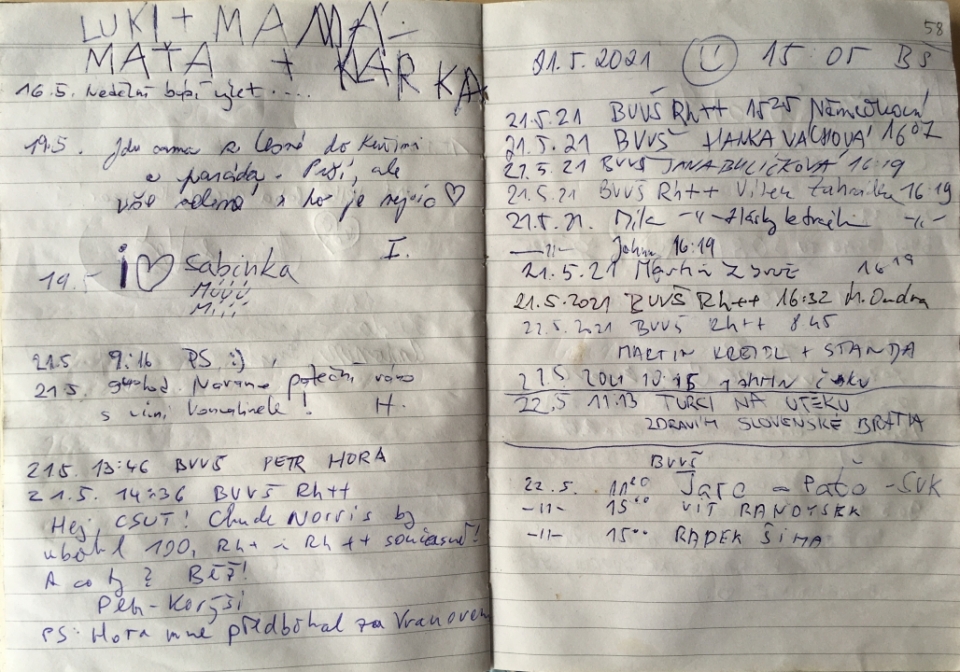 LUKI + MAMA -
MAŤA + KLÁRKA
16.5. Nedělní výlet ....
19.5. Jdu sama z Lesné do Kuřimi
a paráda. Prší, ale
vše zelené a to je nejvíc ♡
19.5 i ♡ Sabinka I.
21.5. 9:16 PS :)
21.5. Norane potěchi
s vini ! H.
21.5. 13:46 BVVŠ PETR HORA
21.5. 14:36 BVVŠ Rh++
Hej, CSUT! Chuck Norris by
uběhl 190, Rh+ i Rh++ současně!
A co ty? Běž!
Petr - Koryši
PS: Hora mne předběhal za Vranovem
58
21.5.2021 Ú 15:05 BŠ
21.5.21 BVVŠ Rh++ 15 25 Němečková
21.5.21 BVVŠ HANKA VACHOVÁ 16 07
21.5.21 BVVŠ JANA BULIČKOVÁ 16:19
21.5.21 BVVŠ Rh++ Vítek 16 19
21.5.21. -"- -"-
-"- John 16:19
21.5.21 Martin z BVVŠ 16 19
21.5.2021 BVVŠ Rh++ 16:32 M. Ondra
22.5.2021 BVVŠ Rh++ 8:45
MARTIN KREJDL + STANDA
22.5 2021 10:15
22.5 11:13 TURCI NA ÚTEKU
ZDRAVÍM SLOVENSKÉ BRATIA
BVVŠ
22.5. 11 20 Jaro - Paťo - SVK
-"- 15 00 VÍT RANDÝSEK
-"- 15 00 RADEK ŠIMA